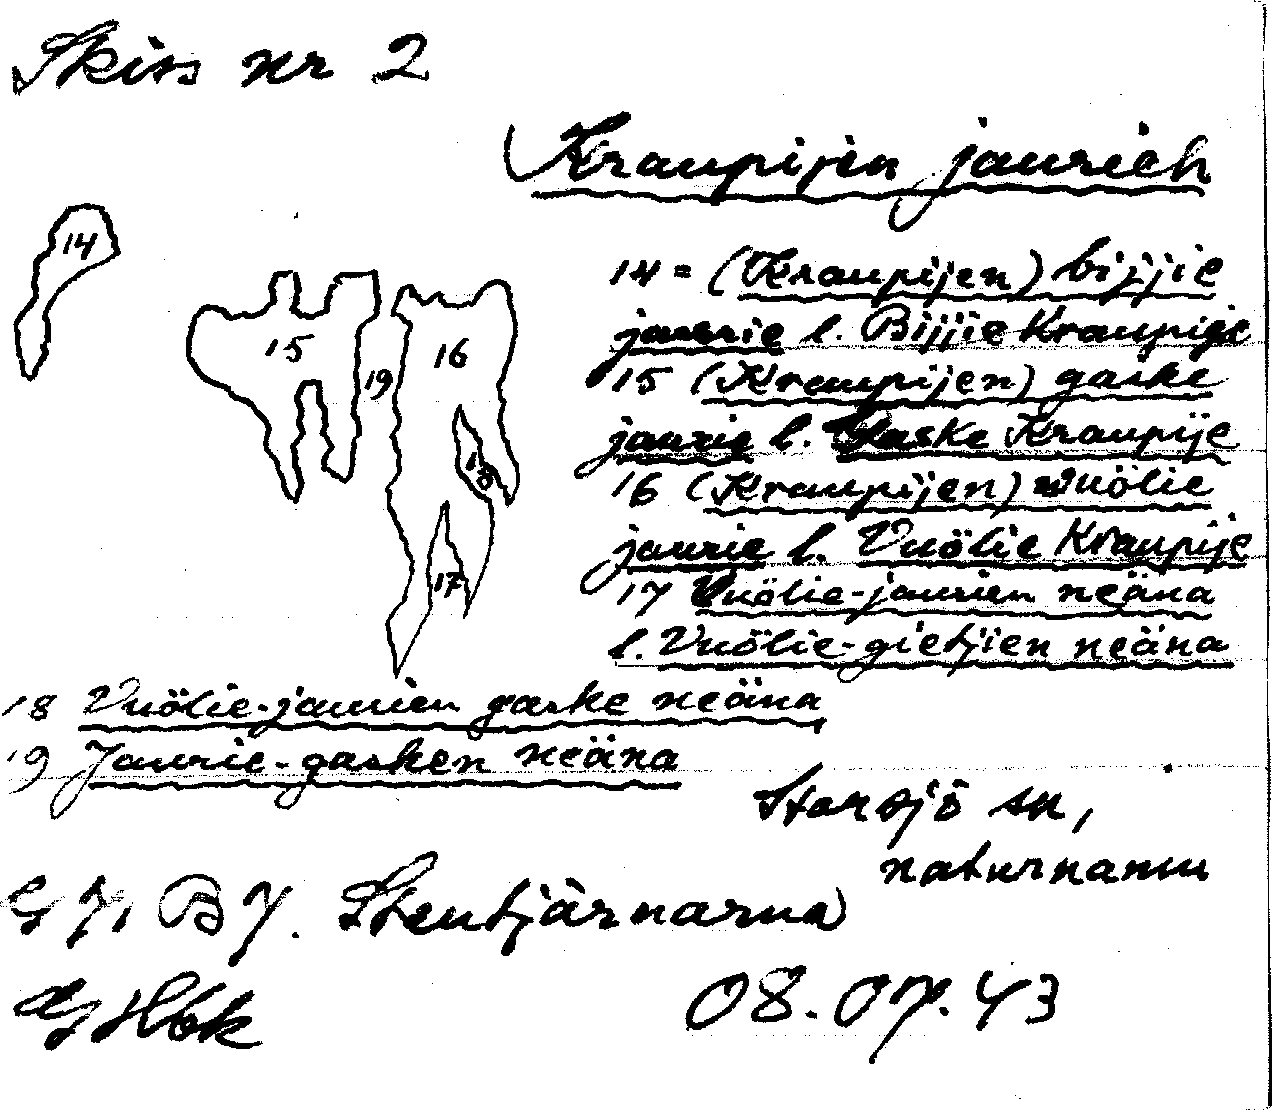 Skiss nr 2
(Kraupijen jaurieh
14
15
19
16
18
17
14 = (Kraupijen) bijjie
jaurie l. Bijjie Kraupije
15 (Kraupijen) gaske
jaurie l. Gaske Kraupije
16 (Kraupijen) vuölie
jaurie l. Vuölie Kraupije
17 Vuölie-jaurien neäna
l. Vuölie-gietjien neäna
18 Vuölie-jaurien gaske neäna
19 Jaurie-gasken neäna
Storsjö sn,
naturnamn
G 7, B 7. Stentjärnarna)
08.07.43